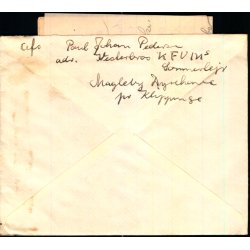 Afs Poul Johan Pedersen
adr. Vesterbros KFUMs
Sommerlejr
Magleby Nyschenke
pr Klippinge